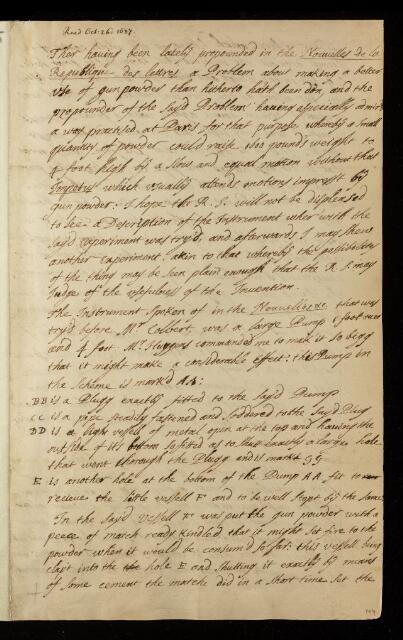 Read Oct: 26: 1687.
Ther having been lately propounded in the Nouvelles de la
Republique des lettres a Problem about making a better
use of gunpowder than hitherto hath been don, and the
propounder of the say'd Problem having especially admir'd
a way practised at Paris for that purpose wherby a small
quantity of powder could raise 1200 pounds weight to
4 foot high by a slow and equal motion without that
Impetus which usually attends motions imprest by
gun powder: I hope the R. S. will not be displeased
to see a Description of the Instrument wher with the
say'd experiment was try'd, and afterwards I may shew
another Experiment akin to that wherby the possibilities
of the thing may be seen plain enough that the R. S. may
judge of the usefulness of the Invention.
The Instrument spoken of in the Nouvelles &c. that was
try'd before Mr. Colbert was a large Pump 1 foot
and 4 foot Mr. Huggens commanded me to make it so bigg
that it might make a considerable effect: this Pump in
the scheme is markd AA:
BB is a Plugg exactly fitted to the say'd Pump
CC is a pipe steadily fastened and soddured to the say'd Plug
DD is a light vessell of metal open at the top and having the
outside of its bottom so fitted as to shut exactly a large hole
that went thorough the Plugg and is markt GG
E is another hole at the bottom of the Pump AA fit to
recieve the little vessell F and to be well stopt by the same
In the say'd vessell F was put the gun powder with a
peece of match ready kindled that it might set fire to the
powder when it would be consum'd so far: this vessell being
clapt into the hole E and shutting it exactly by means
of some cement the matche did in a short time set the